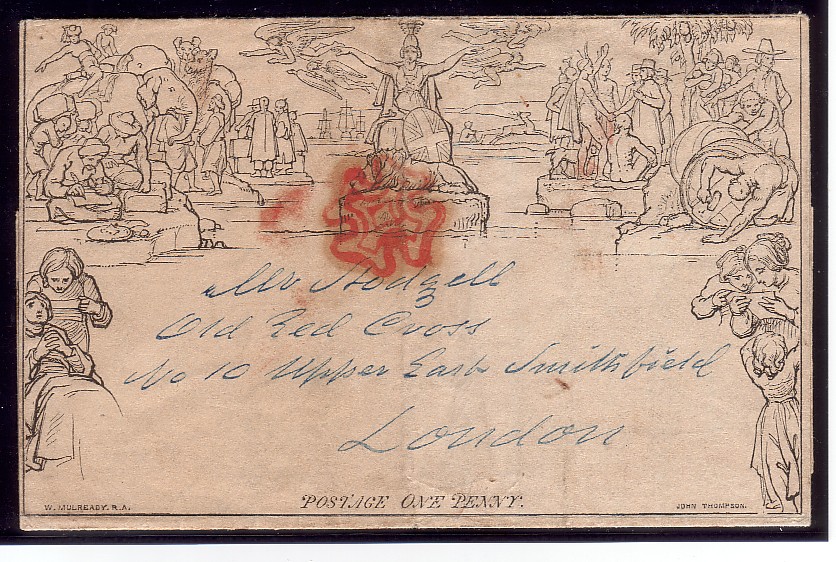 Mr Hodgell
Old Red Cross
No 10 Upper East Smithfield
London
POSTAGE ONE PENNY.
W. MULREADY. R.A.
JOHN THOMPSON.